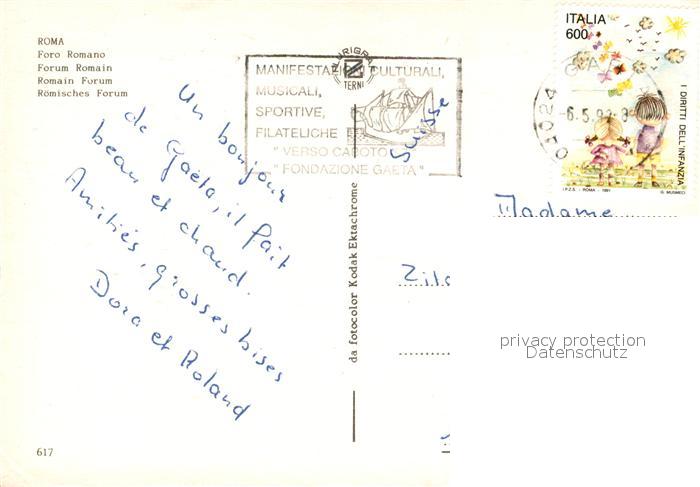 ROMA
Foro Romano
Forum Romain
Romain Forum
Römisches Forum
Un bonjour
de Gaëta, il fait
beau et chaud.
Amitiés, grosses bises
Dora et Roland
617
MANIFESTAZIONI CULTURALI,
MUSICALI,
SPORTIVE,
FILATELICHE
"VERSO CABOTO"
"FONDAZIONE GAETA"
TERNI
da fotocolor Kodak Ektachrome
Suisse
ITALIA
600
I DIRITTI DELL'INFANZIA
I.P.Z.S. - ROMA - 1991
G. MUSMECI
04024
GA
-6.5.92-8
Madame
privacy protection
Datenschutz